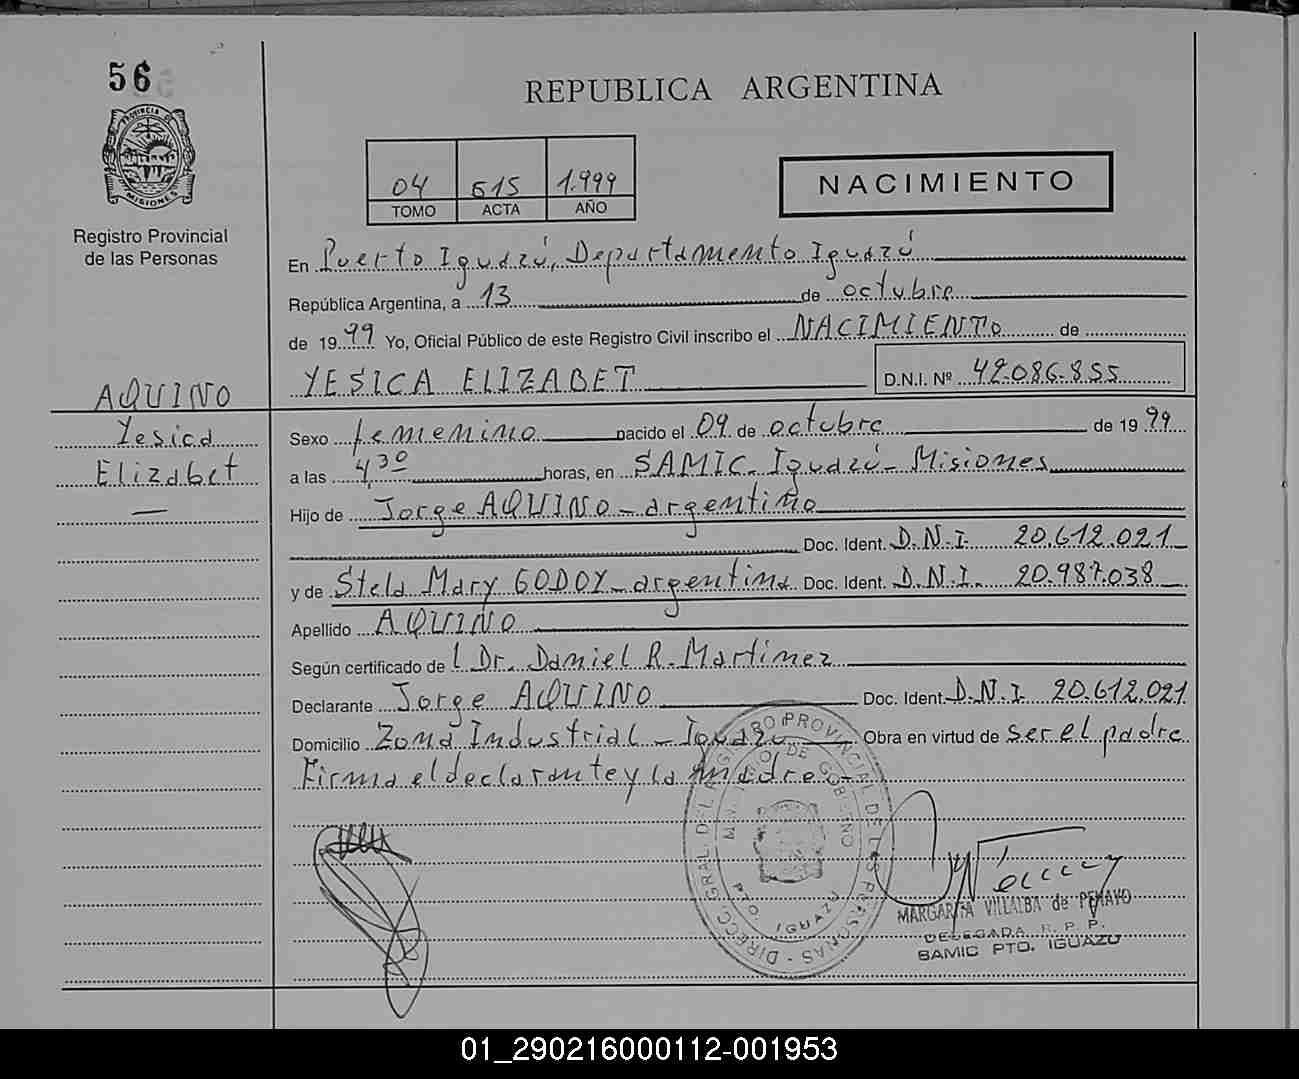 56
REPUBLICA ARGENTINA
PROVINCIA DE MISIONES
Registro Provincial
de las Personas
04 515 1.999
TOMO ACTA AÑO
NACIMIENTO
En Puerto Iguazú, Departamento Iguazú
República Argentina, a 13 de octubre
de 19 99 Yo, Oficial Público de este Registro Civil inscribo el NACIMIENTO de
YESICA ELIZABET D.N.I. Nº 42.086.855
AQUINO
Yesica
Elizabet
—
Sexo femenino nacido el 09 de octubre de 19 99
a las 4,30 horas, en SAMIC. Iguazú - Misiones
Hijo de Jorge AQUINO - argentino
Doc. Ident. D.N.I. 20.612.021
y de Stela Mary GODOY - argentina Doc. Ident. D.N.I. 20.987.038
Apellido AQUINO
Según certificado de l Dr. Daniel R. Martinez
Declarante Jorge AQUINO Doc. Ident. D.N.I 20.612.021
Domicilio Zona Industrial - Iguazu Obra en virtud de ser el padre
Firma el declarante y la madre -
DIRECC. GRAL. DEL REGISTRO PROVINCIAL DE LAS PERSONAS
MINISTERIO DE GOBIERNO
PTO. IGUAZU
MARGARITA VILLALBA de PEMAYO
DELEGADA R. P. P.
SAMIC PTO. IGUAZU
01_290216000112-001953